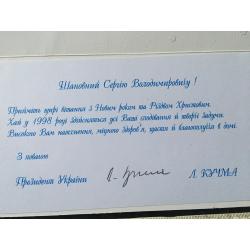 Шановний Сергію Володимировичу !
Прийміть щирі вітання з Новим роком та Різдвом Христовим.
Хай у 1998 році здійсняться усі Ваші сподівання й творчі задуми.
Високого Вам натхнення, міцного здоров'я, щастя й благополуччя в домі.
З повагою
Президент України
Л. КУЧМА